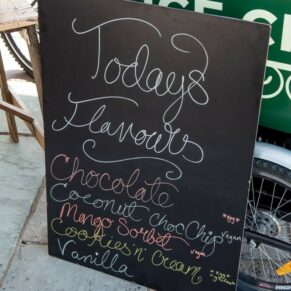 ICE C
Todays
Flavours
Chocolate
Coconut choc Chip vegan
Mango Sorbet vegan
Cookies 'n' Cream
Vanilla